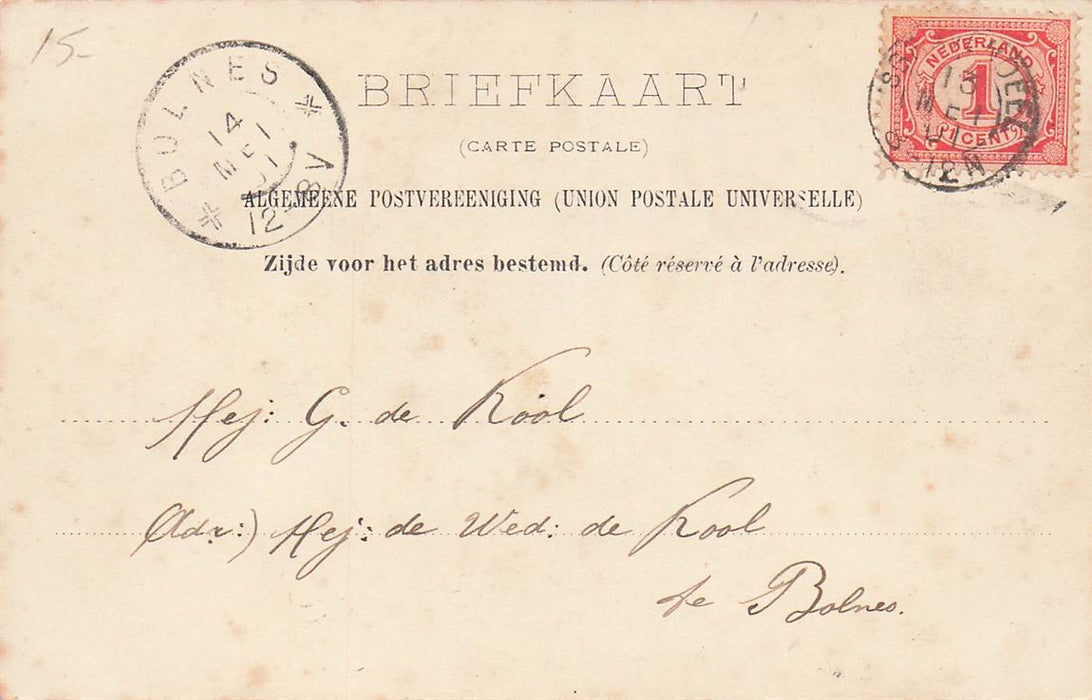 15-
BOLNES
14
MEI
01
12-8V
NEDERLAND
1
CENT
13
MEI
12N
BRIEFKAART
(CARTE POSTALE)
ALGEMEENE POSTVEREENIGING (UNION POSTALE UNIVERSELLE)
Zijde voor het adres bestemd. (Côté réservé à l'adresse).
Mej: G. de Kool
Adr:) Mej: de Wed: de Kool
te Bolnes.